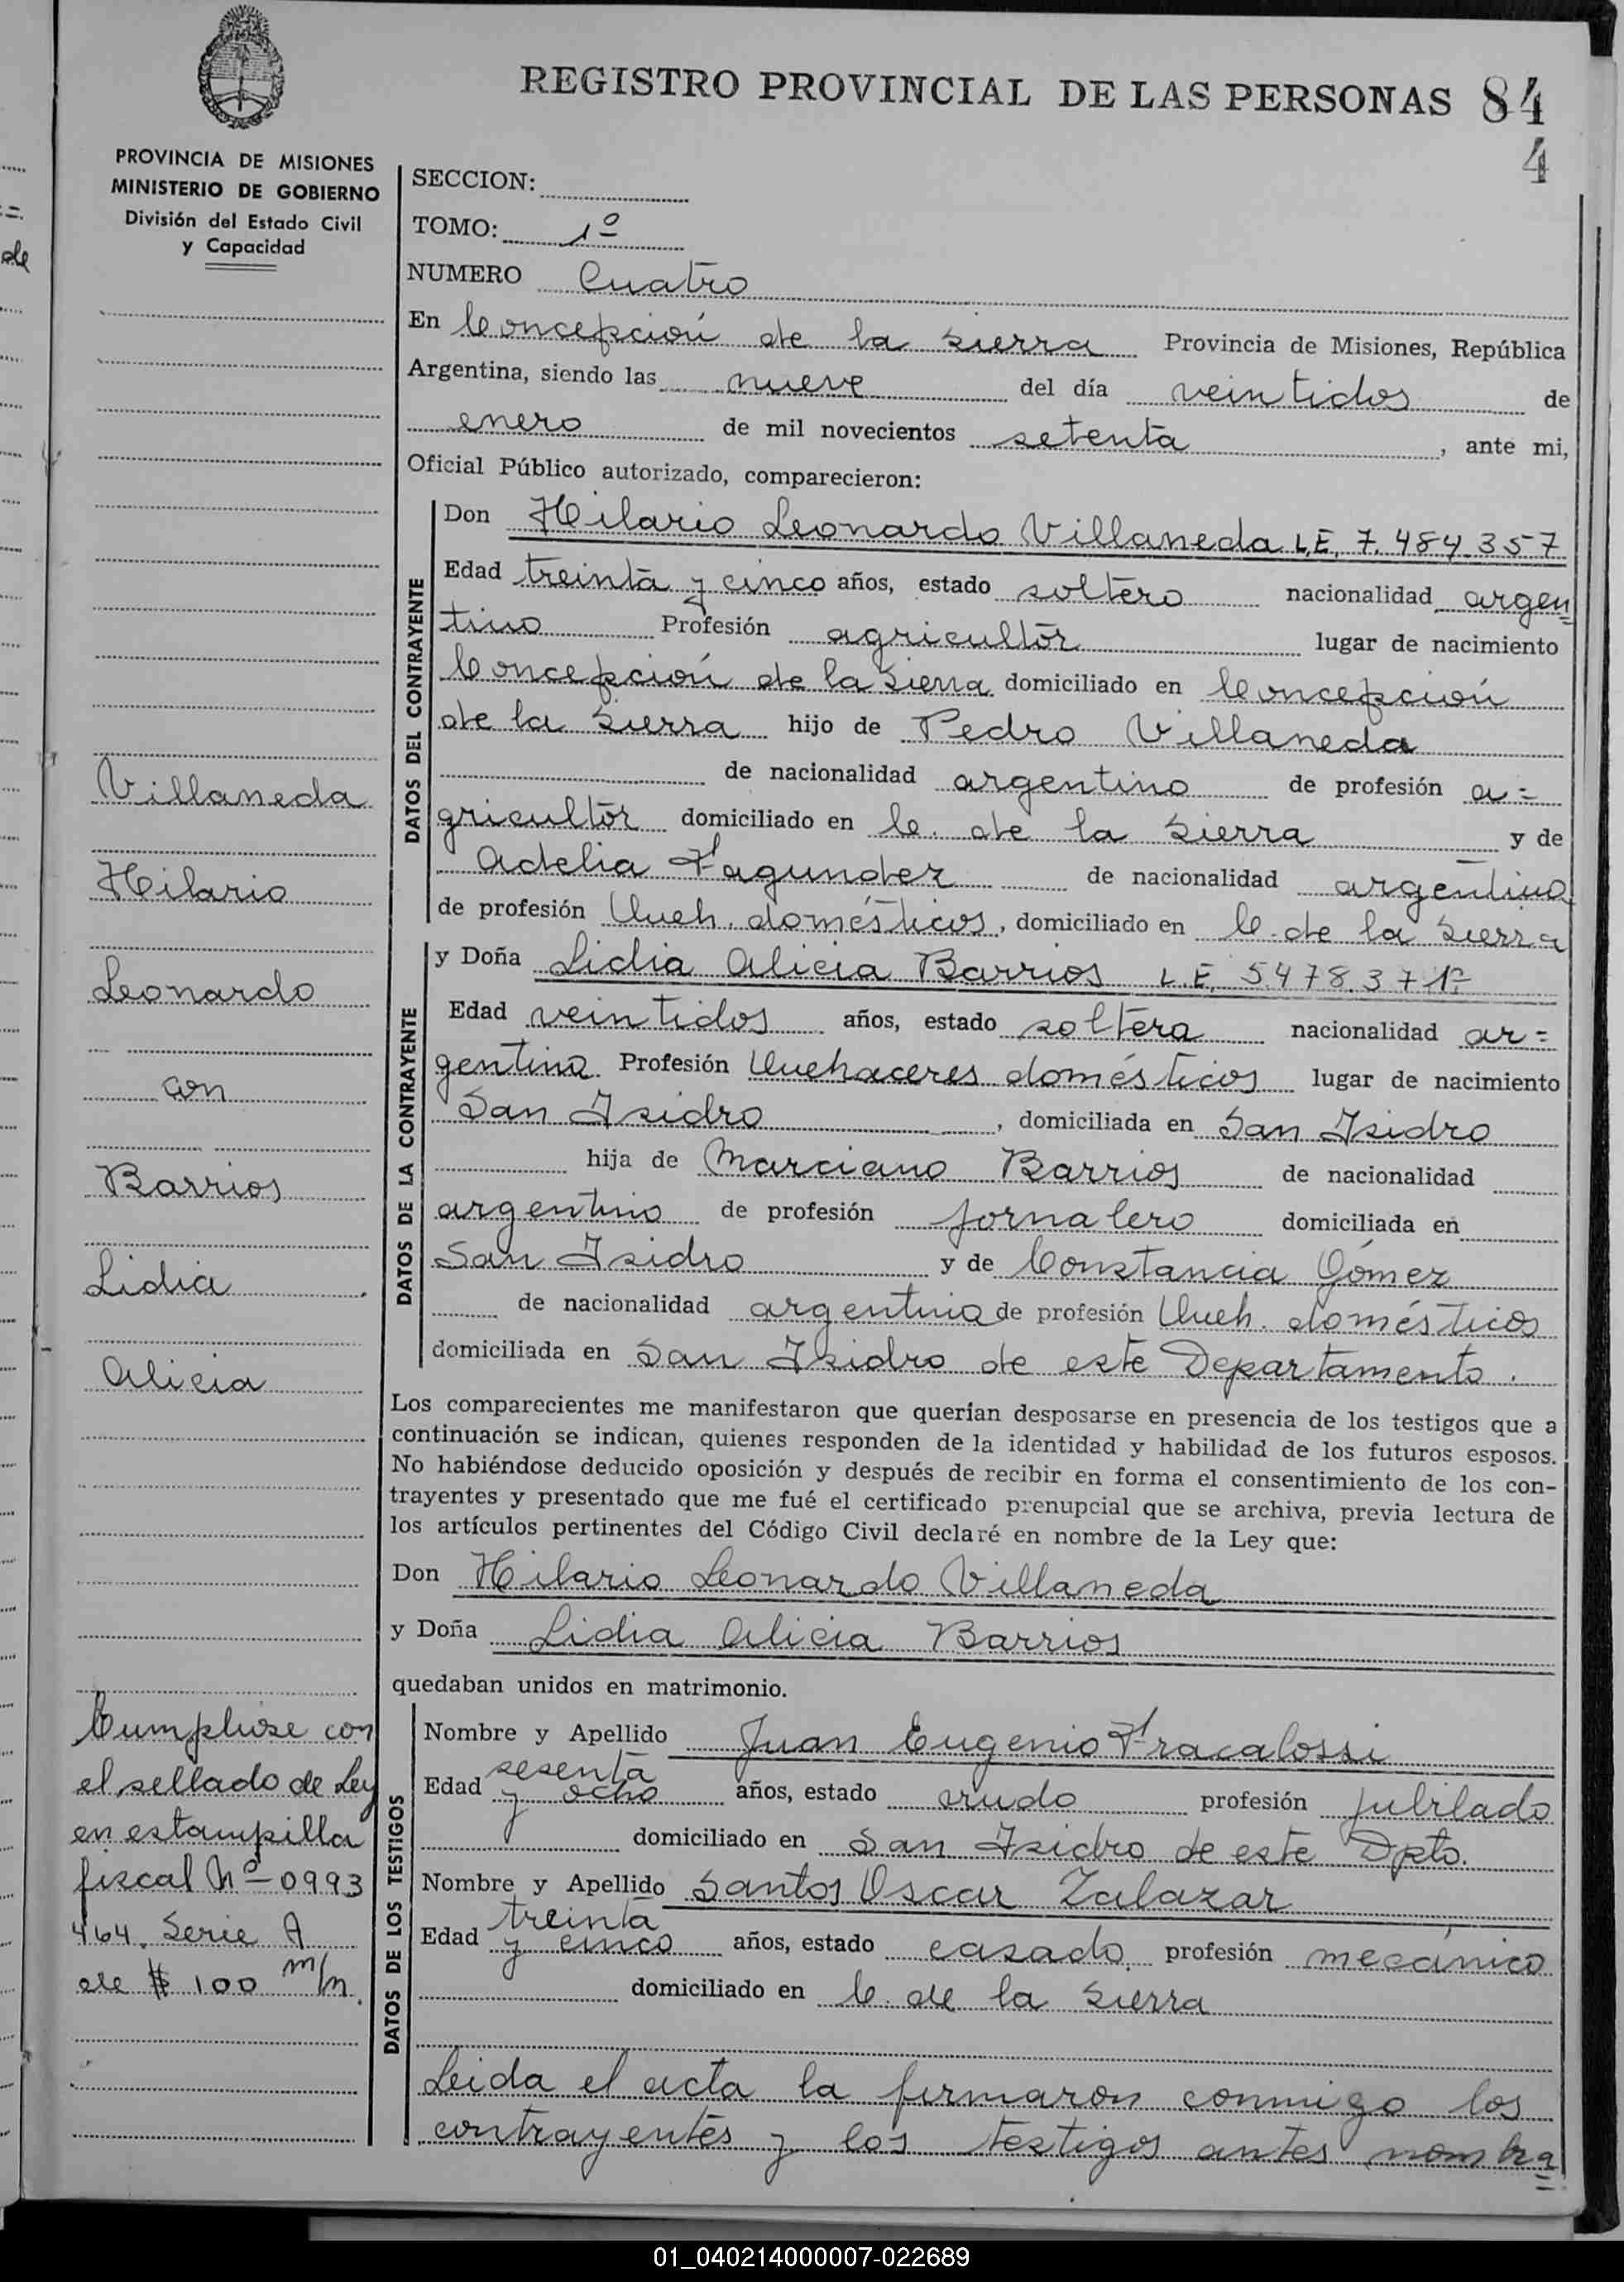 REGISTRO PROVINCIAL DE LAS PERSONAS 84
4
PROVINCIA DE MISIONES
MINISTERIO DE GOBIERNO
División del Estado Civil
y Capacidad
SECCION:
TOMO: 1º
NUMERO Cuatro
En Concepción de la Sierra Provincia de Misiones, República
Argentina, siendo las nueve del día veintidos de
enero de mil novecientos setenta, ante mi,
Oficial Público autorizado, comparecieron:
DATOS DEL CONTRAYENTE
Don Hilario Leonardo Villaneda L.E. 7.484.357
Edad treinta y cinco años, estado soltero nacionalidad argen=
tino Profesión agricultor lugar de nacimiento
Concepción de la Sierra domiciliado en Concepción
de la Sierra hijo de Pedro Villaneda
de nacionalidad argentino de profesión a=
gricultor domiciliado en C. de la Sierra y de
Adelia Fagundez de nacionalidad argentina
de profesión Queh. domésticos, domiciliado en C. de la Sierra
DATOS DE LA CONTRAYENTE
y Doña Lidia Alicia Barrios L.E. 5.478.371=
Edad veintidos años, estado soltera nacionalidad ar=
gentina. Profesión Quehaceres domésticos lugar de nacimiento
San Isidro, domiciliada en San Isidro
hija de Marciano Barrios de nacionalidad
argentino de profesión jornalero domiciliada en
San Isidro y de Constancia Gómez
de nacionalidad argentina de profesión Queh. domésticos
domiciliada en San Isidro de este Departamento.
Los comparecientes me manifestaron que querían desposarse en presencia de los testigos que a
continuación se indican, quienes responden de la identidad y habilidad de los futuros esposos.
No habiéndose deducido oposición y después de recibir en forma el consentimiento de los con-
trayentes y presentado que me fué el certificado prenupcial que se archiva, previa lectura de
los artículos pertinentes del Código Civil declaré en nombre de la Ley que:
Don Hilario Leonardo Villaneda
y Doña Lidia Alicia Barrios
quedaban unidos en matrimonio.
DATOS DE LOS TESTIGOS
Nombre y Apellido Juan Eugenio Fracalossi
Edad sesenta y ocho años, estado viudo profesión jubilado
domiciliado en San Isidro de este Dpto.
Nombre y Apellido Santos Oscar Zalazar
Edad treinta y cinco años, estado casado, profesión mecánico
domiciliado en C. de la Sierra
Leida el acta la firmaron conmigo los
contrayentes y los testigos antes nombra=
Villaneda
Hilario
Leonardo
con
Barrios
Lidia
Alicia
Cumplióse con
el sellado de Ley
en estampilla
fiscal Nº-0993
464. Serie A
de $ 100 m/n.
01_040214000007-022689